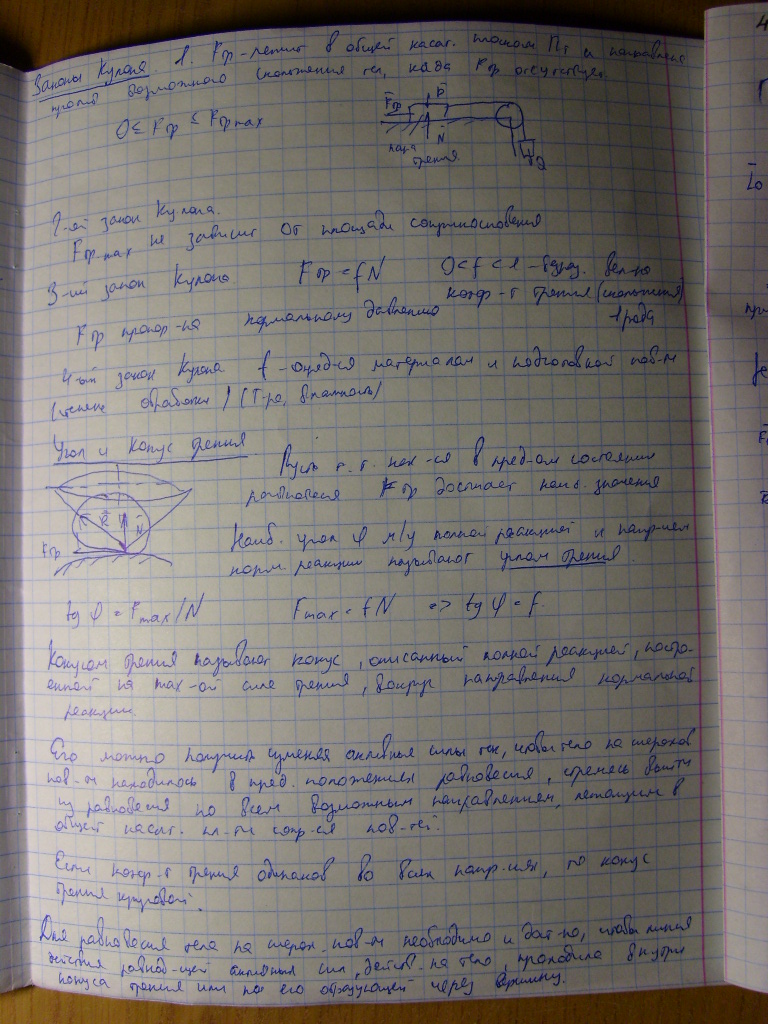 Законы Кулона. 1. Fтр-лежит в общей касат. плоском Пт и направлена
против возможного скольжения тел, когда Fтр отсутствует.
0 ≤ Fтр ≤ Fтр max
Fтр P
N
пара
трения
Q
2-ой закон Кулона.
Fтр max не зависит от площади соприкосновения
3-ий закон Кулона Fтр = fN 0<f<1 - безраз. вел-на
коэф-т трения (скольжения)
1 рода
Fтр пропор-на нормальному давлению
4-ый закон Кулона f - опред-ся материалом и подготовкой пов-ти
(степень обработки) (Т-ра, влажность)
Угол и конус трения
Пусть т. т. нах-ся в пред-ом состоянии
равновесия Fтр достигает наиб. значения
R N
Fтр
Наиб. угол φ м/у полной реакцией и напр-ием
норм. реакции называют углом трения.
tg φ = Fmax/N Fmax = fN => tg φ = f
Конусом трения называют конус, описанный полной реакцией, постро-
енной на max-ой силе трения, вокруг направления нормальной
реакции.
Его можно получить изменяя активные силы так, чтобы тело на шерохов
пов-ти находилось в пред. положениях равновесия, стремясь выйти
из равновесия по всем возможным направлениям, лежащим в
общей касат. пл-ти сопр-ся пов-тей.
Если коэф-т трения одинаков во всех напр-иях, то конус
трения круговой.
Для равновесия тела на шерох. пов-ти необходимо и дост-но, чтобы линия
действия равнод-щей активных сил, действ. на тело, проходила внутри
конуса трения или по его образующей через вершину.